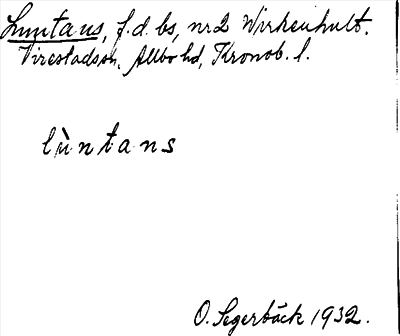 Luntans, f.d. bs, nr 2 Wirkenhult.
Virestadssn, Allbo hd, Kronob. l.
lùntans
O. Segerbäck 1932.